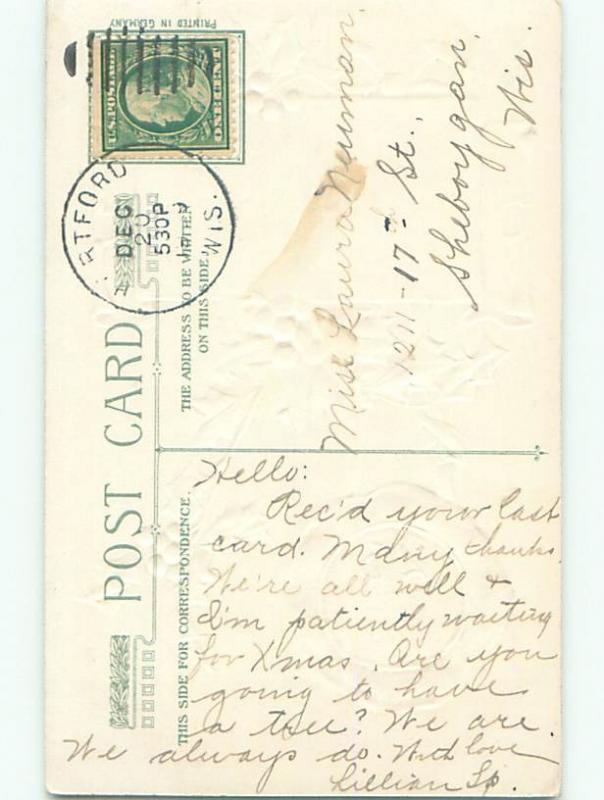 PRINTED IN GERMANY
U.S. POSTAGE
ONE CENT
RTFORD
DEC
20
530P
WIS.
POST CARD
THE ADDRESS TO BE WRITTEN
ON THIS SIDE.
THIS SIDE FOR CORRESPONDENCE.
Miss Laura Neuman.
1211-17th St.,
Sheboygan,
Wis.
Hello:
Rec'd your last
card. Many thanks.
We're all well &
I'm patiently waiting
for Xmas. Are you
going to have
a tree? We are.
We always do. With love
Lillian